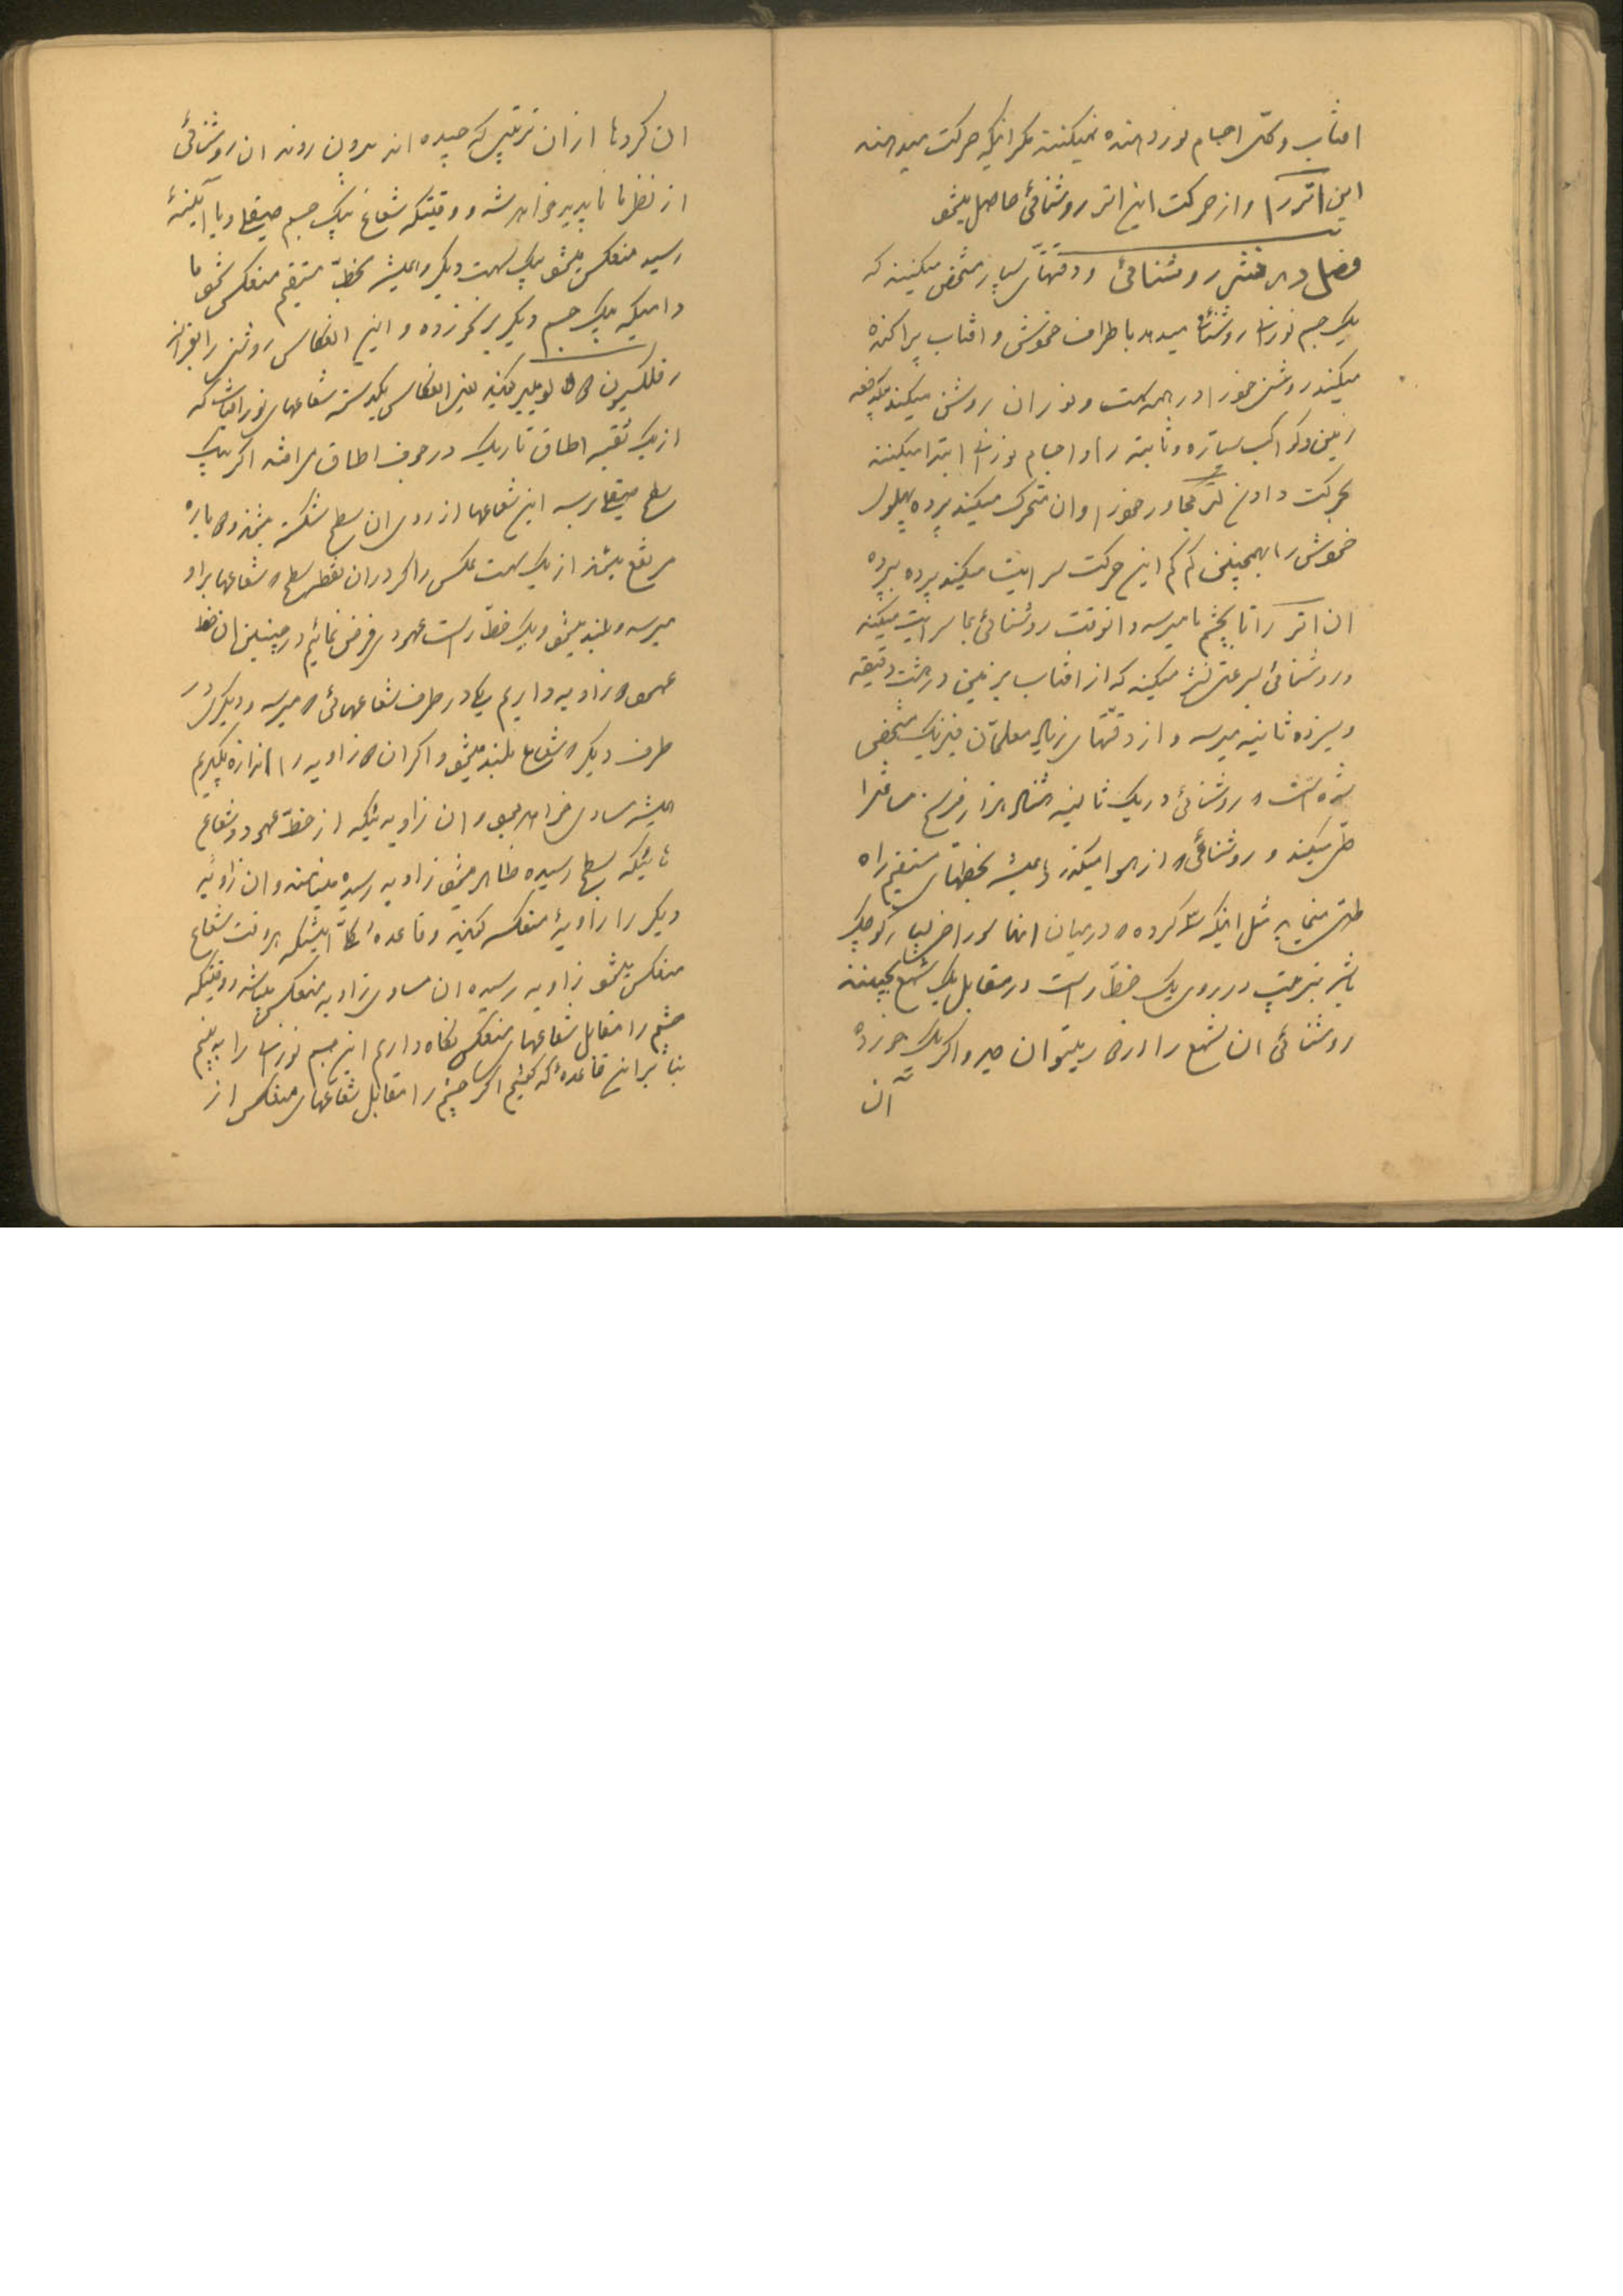 افتاب و کل اجسام نور دهنده نمیکنند مکر اینکه حرکت میدهند
این اتر را و از حرکت این اتر روشنائی حاصل میشود
فصل در نشر روشنائی و دقتهای بسیار مشخص میکنند که
یک جسم نورانی روشنائی میدهد باطراف خودش و افتاب پراکنده
میکند روشنی خود را در همه سمت و نور ان روشن میکند یکدفعه
زمین و کواکب سیاره و ثابته را و اجسام نورانی ابتدا میکنند
بحرکت دادن اتر مجاور خود را و ان متحرک میکند پرده پهلوی
خودش را بهمچنین کم کم این حرکت سرایت میکند پرده بپرده
ان اتر را تا بچشم ما میرسد و انوقت روشنائی بما سرایت میکند
و روشنائی بسرعتی نشر میکند که از افتاب بزمین در هشت دقیقه
و سیزده ثانیه میرسد و از دقتهای زیاد معلمان فیزیک مشخص
شده است که روشنائی در یک ثانیه هفتاد هزار فرسخ مسافترا
طی میکند و روشنائی که از هوا میکذرد همیشه بخطهای مستقیم راه
طی مینماید مثل اینکه سه کرده که در میان انها سوراخ بسیار کوچک
باشد بترتیب در روی یک خط راست در مقابل یک شمع بچینند
روشنائی ان شمع را از میتوان دید و اکر یک خورده
آن
ان کردها از ان ترتیبی که چیده اند بیرون روند ان روشنائی
از نظر ما ناپدید خواهد شد و وقتیکه شعاع بیک جسم صیقلی و یا آیینهٔ
رسید منعکس میشود بیک سمت دیکر و همیشه بخط مستقیم منعکس میشود تا
دامیکه بیک جسم دیکر بر نخورده و این انعکاس روشنی را بفرانسه
رفلکسیون د لومییر میکویند یعنی انعکاس یکدسته شعاعهای نور افتاب که
از یک ثقبه اطاق تاریک در جوف اطاق می افتد اکر بیک
سطح صیقلی برسد این شعاعها از روی ان سطح شکسته میشوند و دوباره
مرتفع میشوند از یک سمت عکس و اکر در ان نقطه سطح که شعاعها براو
میرسد و بلند میشود و یک خط راست عمودی فرض نمائیم در چنین ان خط
عمود دو زاویه داریم یکی در طرف شعاعهائی که میرسد و دیکری در
طرف دیکر که شعاع بلند میشود و اکر ان دو زاویه را اندازه بکیریم
همیشه مساوی خواهد بود و ان زاویه ئیکه از خط عمود و شعاع
هائیکه بسطح رسیده ظاهر میشود زاویه رسیده مینامند و ان زاویه
دیکر را زاویهٔ منعکسه کویند و قاعدهٔ کل اینستکه هر وقت شعاع
منعکس میشود زاویه رسیده ان مساوی زاویه منعکس میباشد و وقتیکه
چشم را مقابل شعاعهای منعکس نکاه داریم این جسم نورانی را به بینیم
بنا بر این قاعدهٔ که کفتیم اکر چشم را مقابل شعاعهای منعکس از